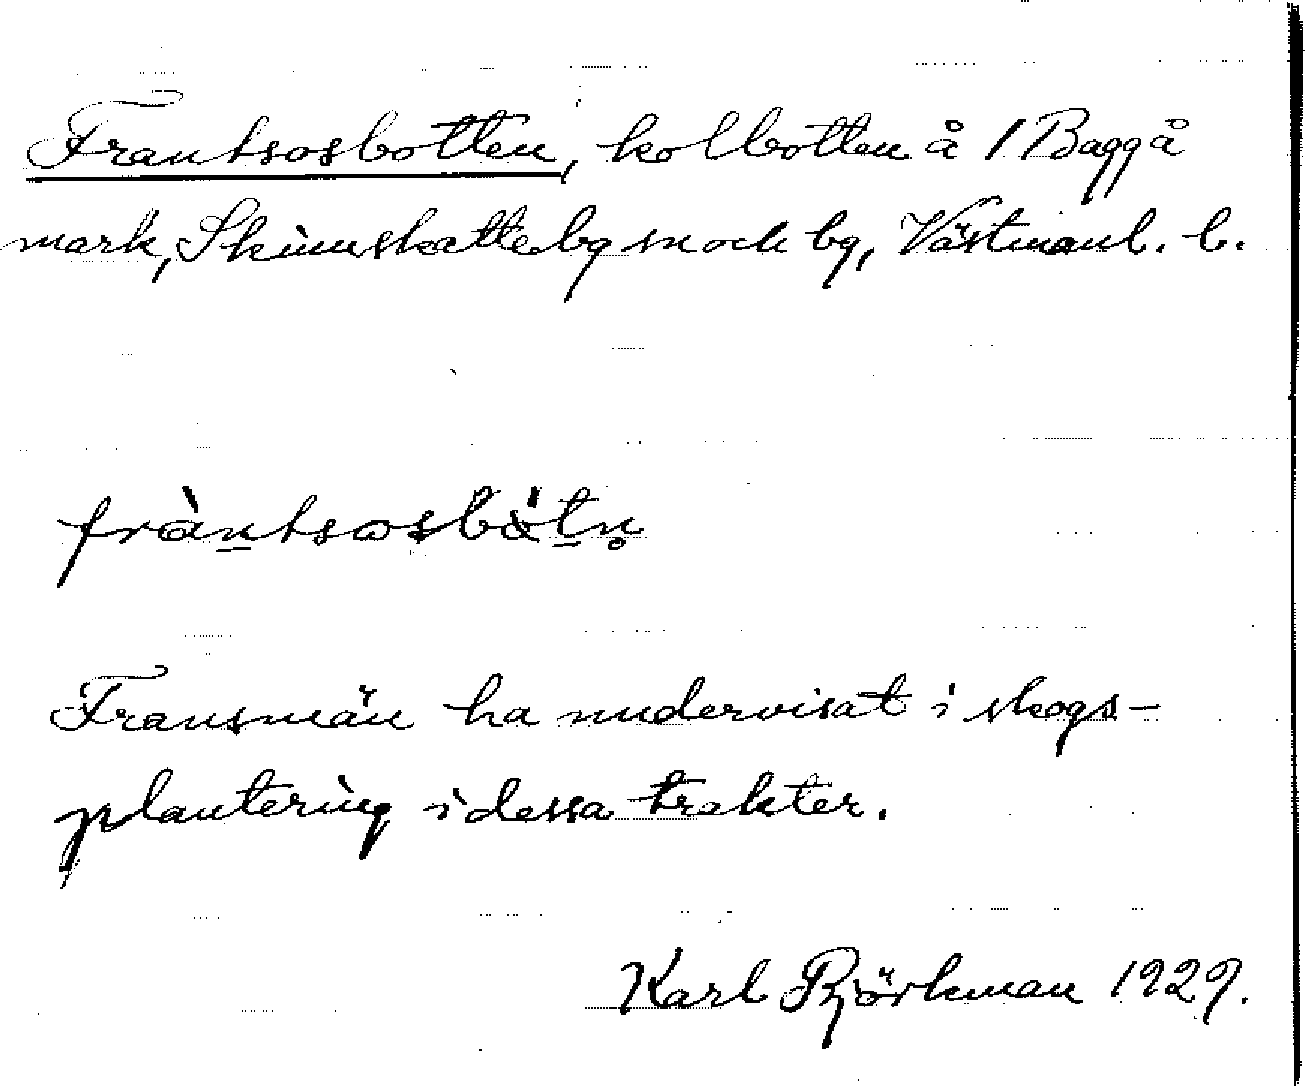 Frantsosbotten, kolbotten å 1 Baggå
mark, Skinnskattebg sn och bg, Västmanl. l.
fràntsosbòtn̥
Fransmän ha undervisat i skogs-
plantering i dessa trakter.
Karl Björkman 1929.